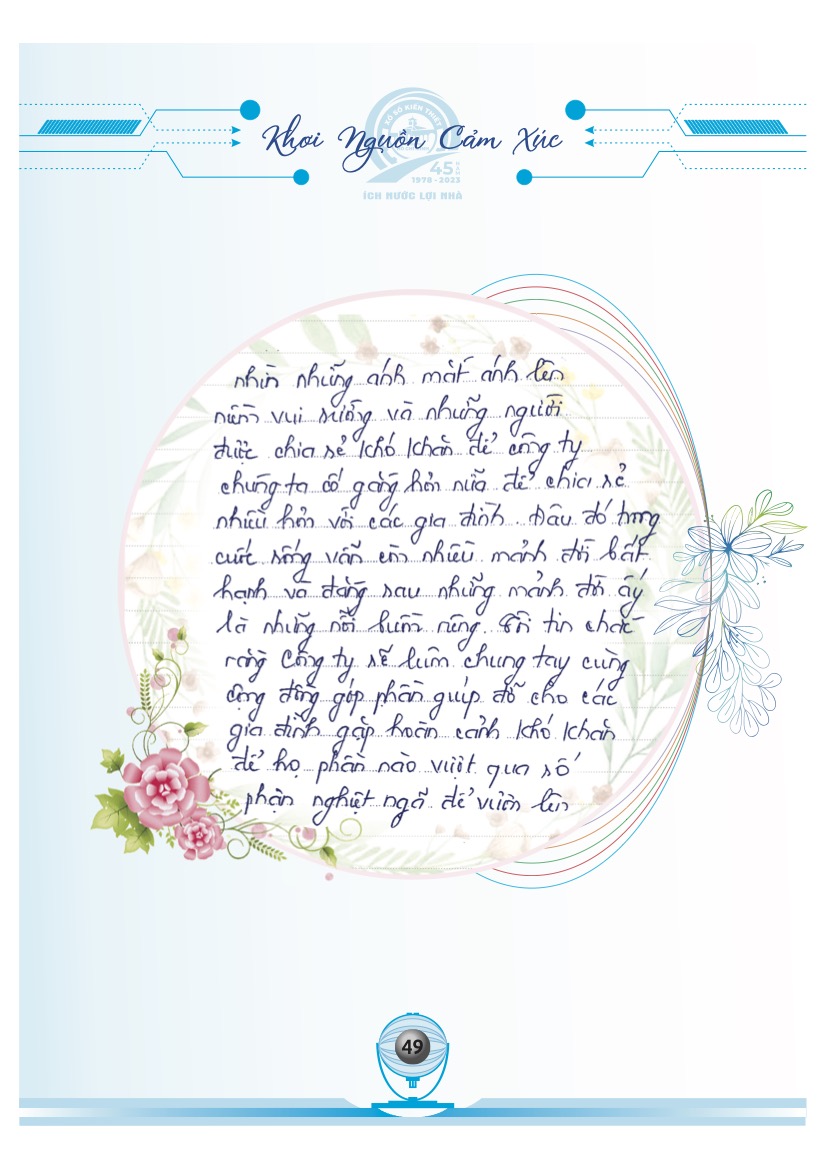 XỔ SỐ KIẾN THIẾT
Khơi Nguồn Cảm Xúc
45 NĂM
1978 - 2023
ÍCH NƯỚC LỢI NHÀ
nhìn những ánh mắt ánh lên
niềm vui sướng và những người
được chia sẻ khó khăn để công ty
chúng ta cố gắng hơn nữa để chia sẻ
nhiều hơn với các gia đình. Đâu đó trong
cuộc sống vẫn còn nhiều mảnh đời bất
hạnh và đằng sau những mảnh đời ấy
là những nỗi buồn riêng. Tôi tin chắc
rằng Công ty sẽ luôn chung tay cùng
cộng đồng góp phần giúp đỡ cho các
gia đình gặp hoàn cảnh khó khăn
để họ phần nào vượt qua số
phận nghiệt ngã để vươn lên
49